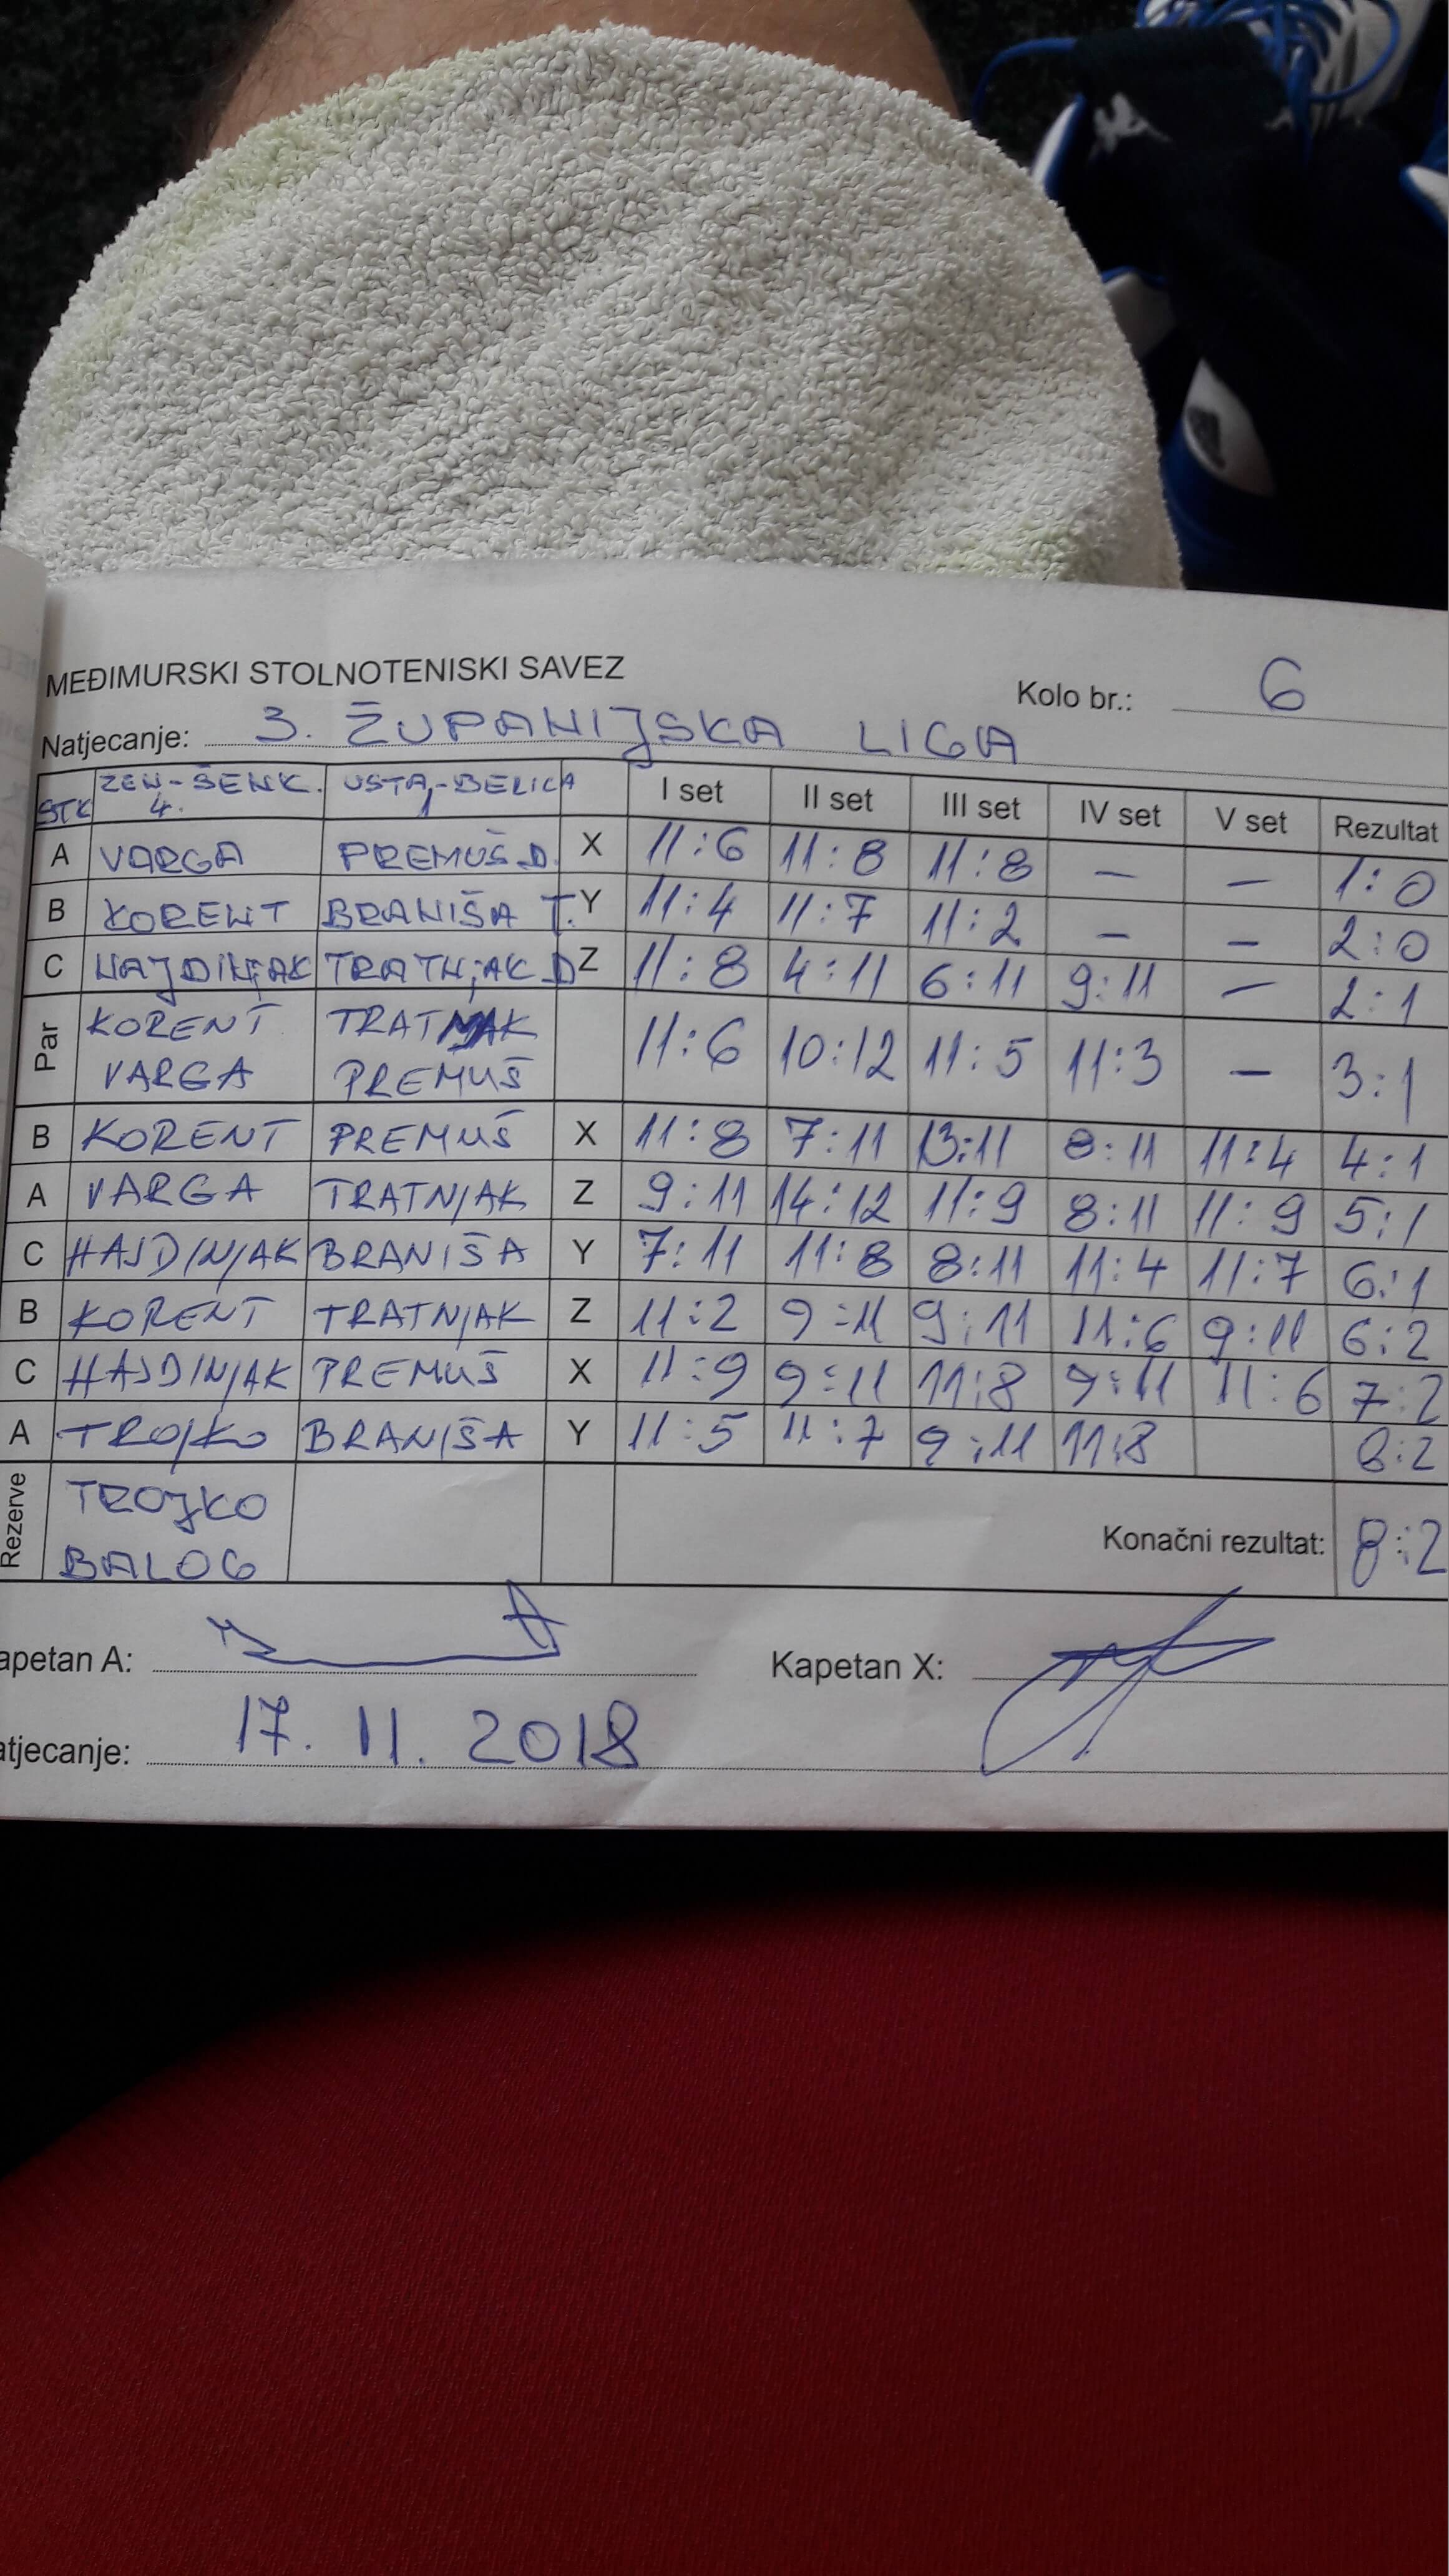 MEĐIMURSKI STOLNOTENISKI SAVEZ
Kolo br.: 6
Natjecanje: 3. ŽUPANIJSKA LIGA
STK ZEN-ŠENK. 4. USTA-BELICA 1 I set II set III set IV set V set Rezultat
A VARGA PREMUŠ D. X 11:6 11:8 11:8 – – 1:0
B KORENT BRANIŠA T. Y 11:4 11:7 11:2 – – 2:0
C HAJDINJAK TRATNJAK D Z 11:8 4:11 6:11 9:11 – 2:1
Par KORENT TRATNJAK 11:6 10:12 11:5 11:3 – 3:1
VARGA PREMUŠ
B KORENT PREMUŠ X 11:8 7:11 13:11 8:11 11:4 4:1
A VARGA TRATNJAK Z 9:11 14:12 11:9 8:11 11:9 5:1
C HAJDINJAK BRANIŠA Y 7:11 11:8 8:11 11:4 11:7 6:1
B KORENT TRATNJAK Z 11:2 9:11 9:11 11:6 9:11 6:2
C HAJDINJAK PREMUŠ X 11:9 9:11 11:8 9:11 11:6 7:2
A TROJKO BRANIŠA Y 11:5 11:7 9:11 11:8 8:2
Rezerve TROJKO
BALOG Konačni rezultat: 8:2
apetan A: Kapetan X:
atjecanje: 17. 11. 2018